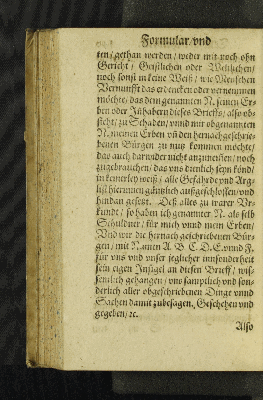 Formular/vnd
ten/gethan werden/weder mit noch ohn
Gericht/Geistlichen oder Weltlichen/
noch sonst in keine Weiß/wie Menschen
Vernunfft das erdencken oder vernemmen
möchte/das dem genannten N. seinen Er-
ben oder Inhabern dieses Brieffs/also ob-
steht/zu Schaden/vnnd mir obgenannten
N. meinen Erben vñ den hernachgeschrie-
benen Bürgen zu nutz kommen möchte/
das auch darwider nicht anzuweisen/noch
zugebrauchen/das vns dienlich seyn könd/
in keinerley weiß/alle Gefährde vnd Arg-
list hierinnen gäntzlich außgeschlossen/vnd
hindan gesetzt. Deß alles zu warer Vr-
kundt/so haben ich genannter N. als selb
Schuldner/für mich vnnd mein Erben/
Vnd wir die hernach geschriebenen Bür-
gen/mit Namen A. B C. D. E. vnnd F.
für vns vnd vnser jeglicher innsonderheit
sein eigen Insigel an diesen Brieff/wis-
sentlich gehangen/vns samptlich vnd son-
derlich aller obgeschriebenen Dinge vnnd
Sachen damit zubesagen. Geschehen vnd
gegeben/ꝛc.
Also